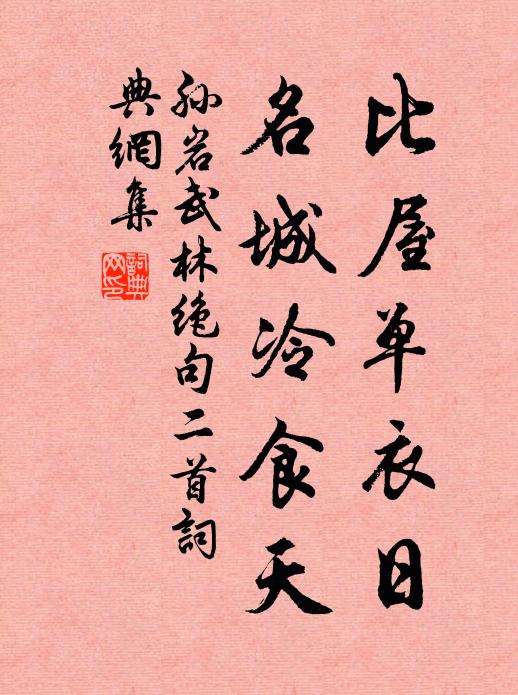 比屋单衣日
名城冷食天
孙岩武林绝句二首詞
典網集
詞典
网印